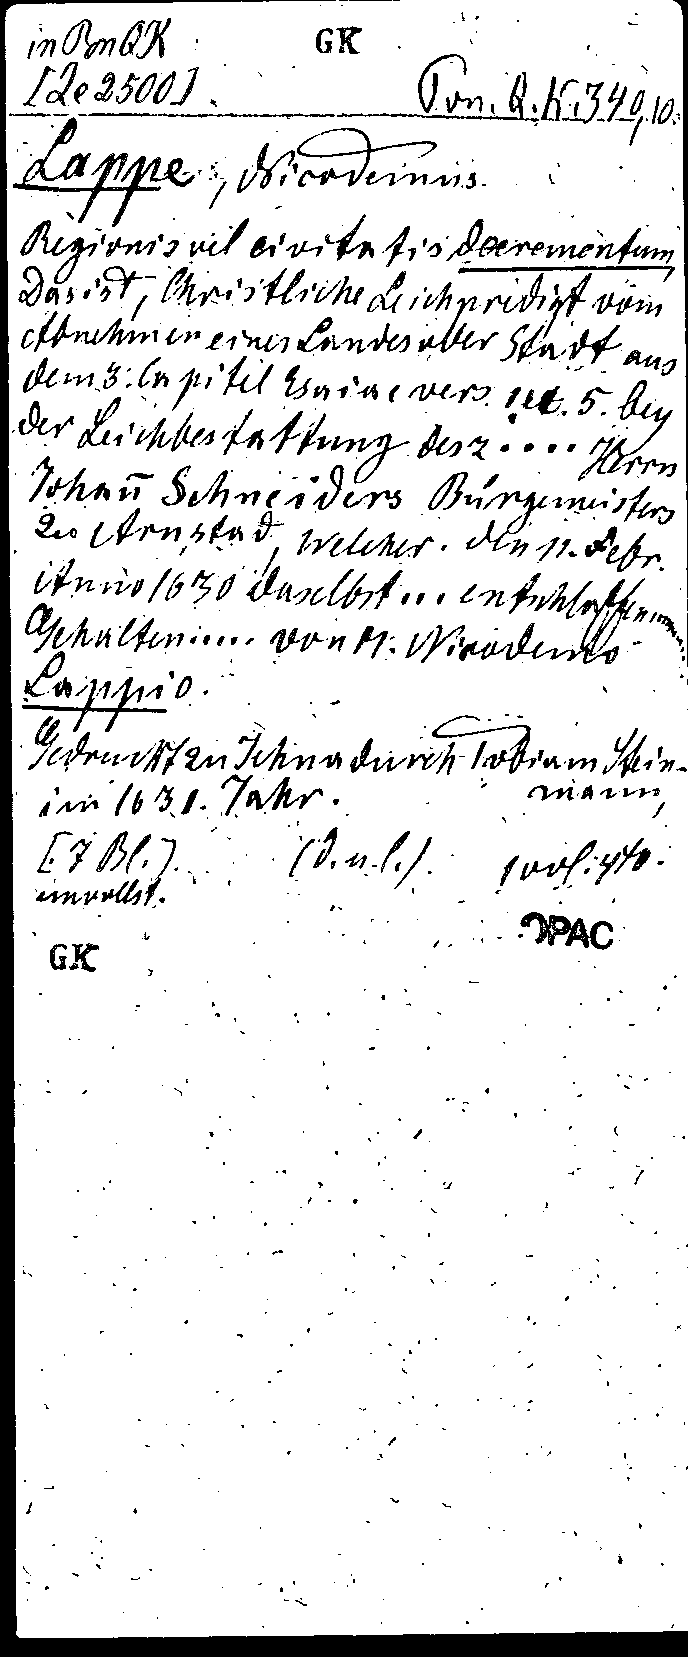 in Pon QK GK
[Ze 2500]. Pon. Q. K. 340,10.
Lappe, Nicodemus.
Regionis vel civitatis decrementum,
Das ist, Christliche Leichpredigt vom
Abnehmen eines Landes oder Stadt aus
dem 3. Capitel Esaiae vers. 1 et. 5. bey
der Leichbestattung des .... Herrn
Johan̄ Schneiders Bürgemeisters
zu Arnstad, welcher. den 11. Febr.
Anno 1630 daselbst... entschlaffen....
Gehalten.... von M. Nicodemo
Lappio.
Gedruckt zu Jehna durch Tobiam Stein-
mann,
im 1631. Jahr.
[7 Bl.]. (D. u. l.). 1 vol: 4to.
unvollst.
OPAC
GK